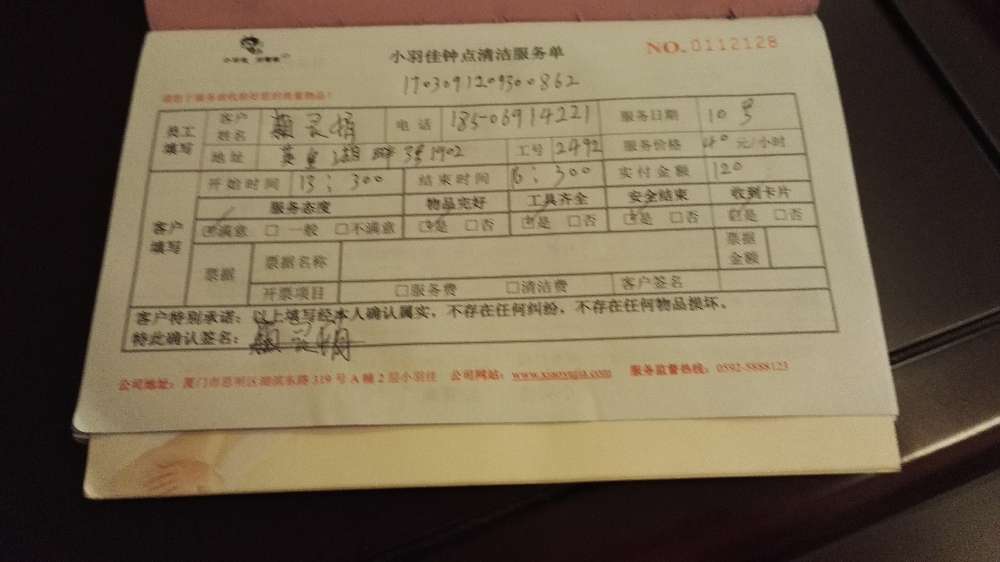 小羽佳钟点清洁服务单 NO.0112128
170309120930862
员工填写 客户姓名 灵娟 电话 18506914221 服务日期 10号
地址 湖畔 3号1902 工号 2492 服务价格 40 元/小时
开始时间 13:300 结束时间 16:300 实付金额 120
客户填写 服务态度 物品完好 工具齐全 安全结束 收到卡片
☑满意 □ 一般 □不满意 ☑是 □否 ☑是 □否 ☑是 □否 ☑是 □否
票据 票据名称 票据金额
开票项目 □服务费 □清洁费 客户签名
客户特别承诺：以上填写经本人确认属实，不存在任何纠纷，不存在任何物品损坏。
特此确认签名： 灵娟
公司地址：厦门市思明区湖滨东路 319 号 A 幢 2 层小羽佳 公司网站：www.xiaoyujia.com 服务监督热线：0592-5888123